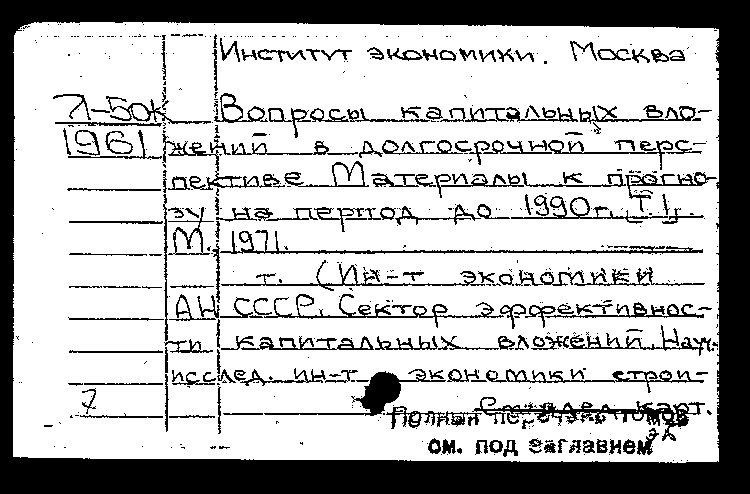 Институт экономики. Москва
Л-50к Вопросы капитальных вло-
1961 жений в долгосрочной перс-
пективе Материалы к прогно-
зу на период до 1990г. Т. 1,
М., 1971.
т. (Ин-т экономики
АН СССР. Сектор эффективнос-
ти капитальных вложений. Науч.-
исслед. ин-т экономики строи-
См. след. карт.
7
Полный перечень томов
см. под заглавием